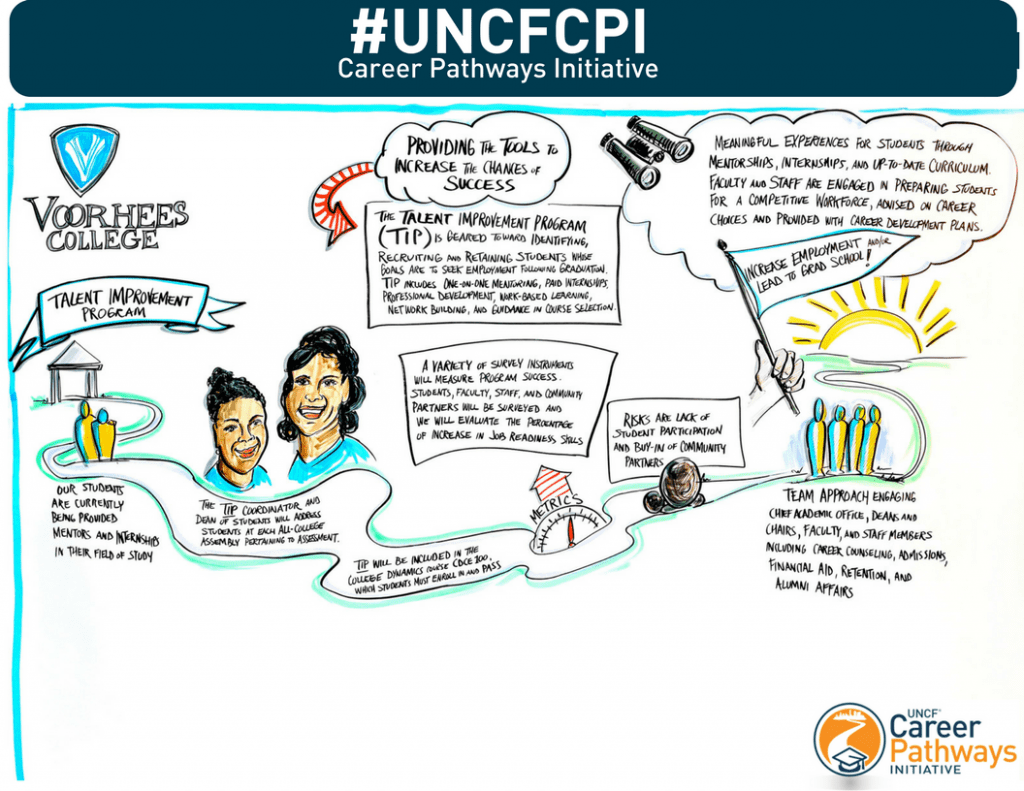 #UNCFCPI
Career Pathways Initiative
VOORHEES
COLLEGE
PROVIDING THE TOOLS TO
INCREASE THE CHANCES OF
SUCCESS
MEANINGFUL EXPERIENCES FOR STUDENTS THROUGH
MENTORSHIPS, INTERNSHIPS, AND UP-TO-DATE CURRICULUM.
FACULTY AND STAFF ARE ENGAGED IN PREPARING STUDENTS
FOR A COMPETITIVE WORKFORCE, ADVISED ON CAREER
CHOICES AND PROVIDED WITH CAREER DEVELOPMENT PLANS.
THE TALENT IMPROVEMENT PROGRAM
(TIP) IS GEARED TOWARD IDENTIFYING,
RECRUITING AND RETAINING STUDENTS WHOSE
GOALS ARE TO SEEK EMPLOYMENT FOLLOWING GRADUATION.
TIP INCLUDES ONE-ON-ONE MENTORING, PAID INTERNSHIPS,
PROFESSIONAL DEVELOPMENT, WORK-BASED LEARNING,
NETWORK BUILDING, AND GUIDANCE IN COURSE SELECTION.
INCREASE EMPLOYMENT AND/OR
LEAD TO GRAD SCHOOL!
TALENT IMPROVEMENT
PROGRAM
A VARIETY OF SURVEY INSTRUMENTS
WILL MEASURE PROGRAM SUCCESS.
STUDENTS, FACULTY, STAFF, AND COMMUNITY
PARTNERS WILL BE SURVEYED AND
WE WILL EVALUATE THE PERCENTAGE
OF INCREASE IN JOB READINESS SKILLS
RISKS ARE LACK OF
STUDENT PARTICIPATION
AND BUY-IN OF COMMUNITY
PARTNERS
OUR STUDENTS
ARE CURRENTLY
BEING PROVIDED
MENTORS AND INTERNSHIPS
IN THEIR FIELD OF STUDY
THE TIP COORDINATOR AND
DEAN OF STUDENTS WILL ADDRESS
STUDENTS AT EACH ALL-COLLEGE
ASSEMBLY PERTAINING TO ASSESSMENT.
METRICS
TIP WILL BE INCLUDED IN THE
COLLEGE DYNAMICS COURSE CDCE 100.
WHICH STUDENTS MUST ENROLL IN AND PASS
TEAM APPROACH ENGAGING
CHIEF ACADEMIC OFFICE, DEANS AND
CHAIRS, FACULTY, AND STAFF MEMBERS
INCLUDING CAREER COUNSELING, ADMISSIONS,
FINANCIAL AID, RETENTION, AND
ALUMNI AFFAIRS
UNCF®
Career
Pathways
INITIATIVE